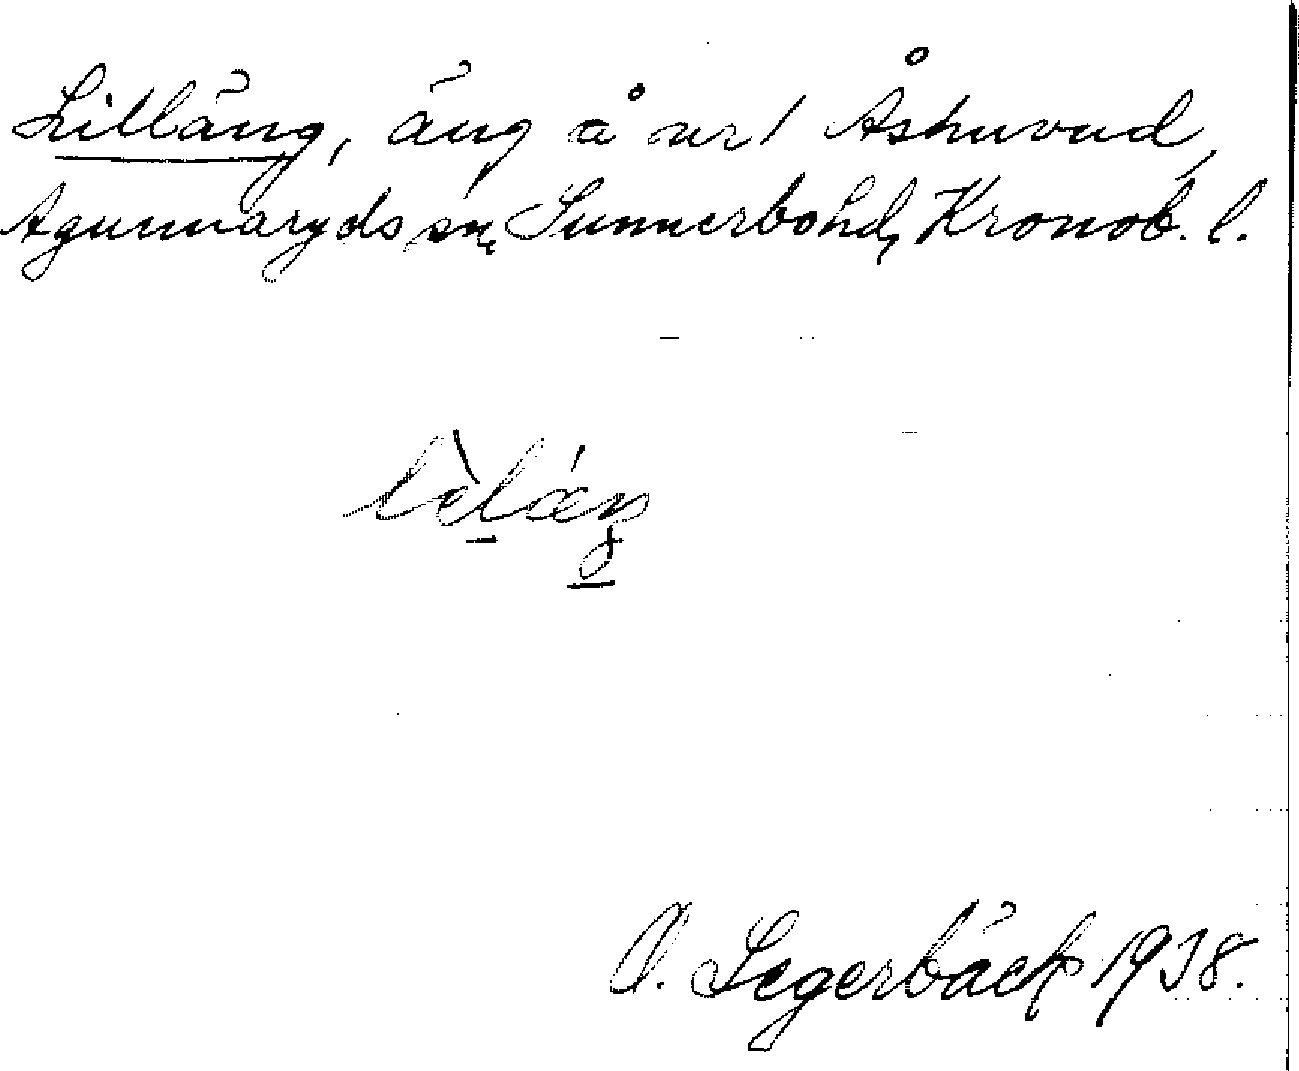 Lilläng, äng å nr 1 Åshuvud,
Agunnaryds sn, Sunnerbo hd, Kronob. l.
O. Segerbäck 1938.